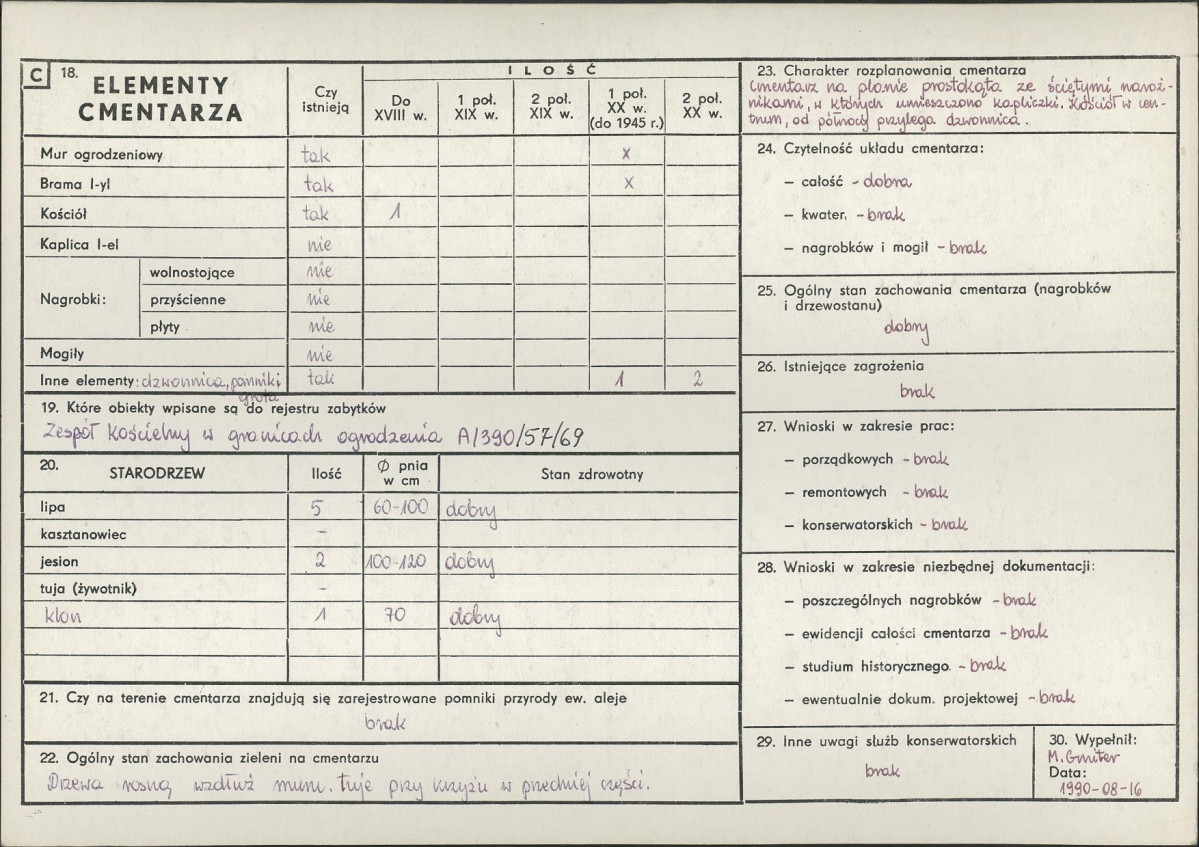 C 18. ELEMENTY CMENTARZA
Czy istnieją
ILOŚĆ
Do XVIII w.
1 poł. XIX w.
2 poł. XIX w.
1 poł. XX w. (do 1945 r.)
2 poł. XX w.
Mur ogrodzeniowy tak x
Brama l-yl tak x
Kościół tak 1
Kaplica l-el nie
Nagrobki: wolnostojące nie
przyścienne nie
płyty nie
Mogiły nie
Inne elementy: dzwonnica, pomniki, grota tak 1 2
19. Które obiekty wpisane są do rejestru zabytków
Zespół kościelny w granicach ogrodzenia A/390/57/69
20. STARODRZEW Ilość Ø pnia w cm Stan zdrowotny
lipa 5 60-100 dobry
kasztanowiec -
jesion 2 100-120 dobry
tuja (żywotnik) -
klon 1 70 dobry
21. Czy na terenie cmentarza znajdują się zarejestrowane pomniki przyrody ew. aleje
brak
22. Ogólny stan zachowania zieleni na cmentarzu
Drzewa rosną wzdłuż muru. tuje przy krzyżu w przedniej części.
23. Charakter rozplanowania cmentarza
Cmentarz na planie prostokąta ze ściętymi naroż-
nikami, w których umieszczono kapliczki. Kościół w cen-
trum, od północy przylega dzwonnica.
24. Czytelność układu cmentarza:
– całość - dobra
– kwater, - brak
– nagrobków i mogił - brak
25. Ogólny stan zachowania cmentarza (nagrobków
i drzewostanu)
dobry
26. Istniejące zagrożenia
brak
27. Wnioski w zakresie prac:
– porządkowych - brak
– remontowych - brak
– konserwatorskich - brak
28. Wnioski w zakresie niezbędnej dokumentacji:
– poszczególnych nagrobków - brak
– ewidencji całości cmentarza - brak
– studium historycznego. - brak
– ewentualnie dokum. projektowej - brak
29. Inne uwagi służb konserwatorskich
brak
30. Wypełnił:
M. Gmiter
Data:
1990-08-16